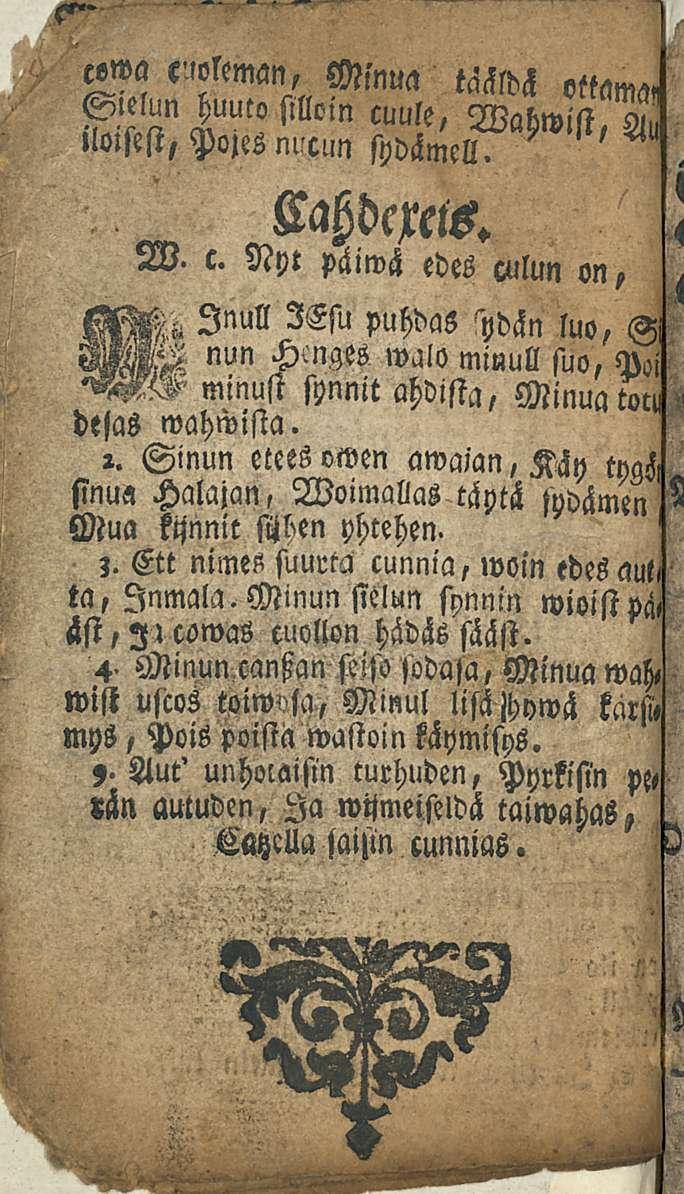 cowa cuoleman, Minua tääldä ottaman
Sielun huuto silloin cuule, Wahwist, Au
iloisest, Pojes nucun sydämell.
Cahdexeis.
W. c. Nyt päiwä edes culun on,
MInull JEsu puhdas sydän luo, Si
nun Henges walo minull suo, Poi
minust synnit ahdista, Minua totu
desas wahwista.
2. Sinun etees owen awajan, Käy tygö
sinua Halajan, Woimallas täytä sydämen
Mua kijnnit sijhen yhtehen.
3. Ett nimes suurta cunnia, woin edes aut-
ta, Inmala. Minun sielun synnin wioist pä-
äst, Ja cowas cuollon hädäs sääst.
4. Minun canßan seiso sodasa, Minua wah-
wist uscos toiwosa, Minul lisä hywä kärsi-
mys, Pois poista wastoin käymisys.
5. Aut' unhotaisin turhuden, Pyrkisin pe-
rän autuden, Ja wijmeiseldä taiwahas,
Catzella saisin cunnias.